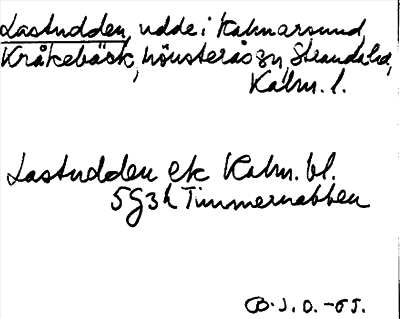 Lastudden, udde i Kalmarsund,
Kråkebäck, Mönsterås sn, Stranda hd,
Kalm. l.
Lastudden ek Kalm. bl.
5G3h Timmernabben
B.J.O. -65.